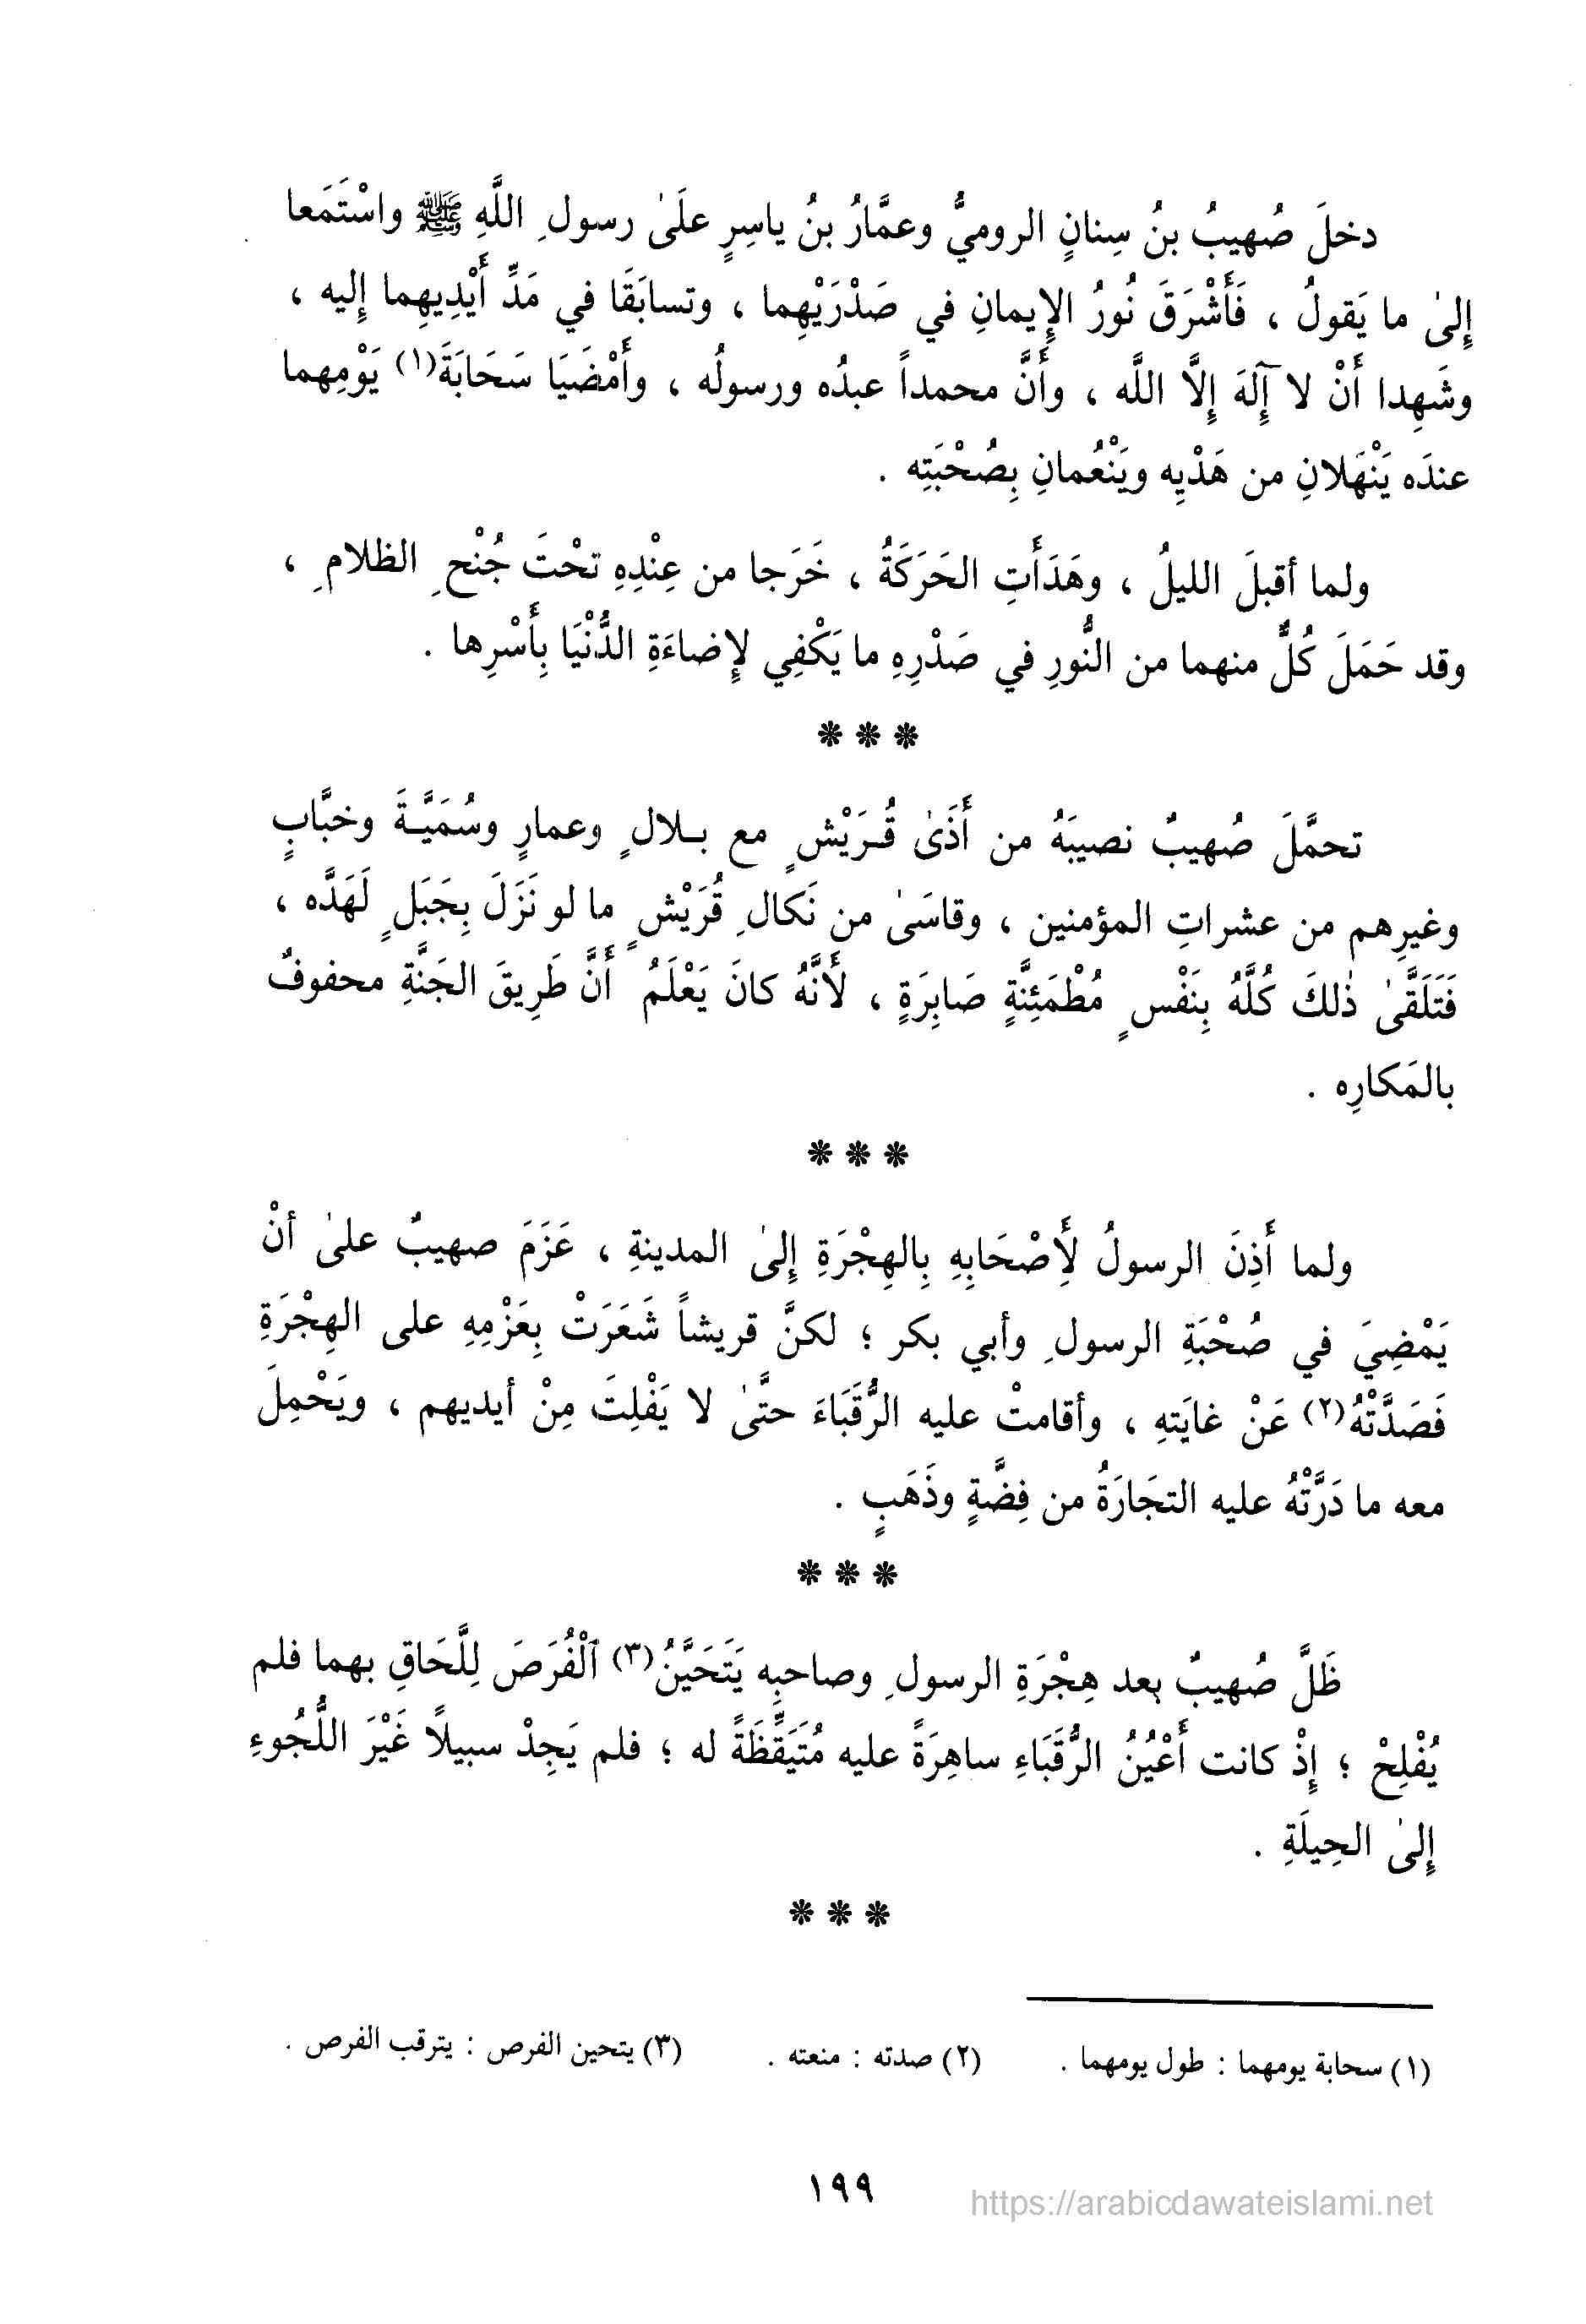 دخلَ صُهيبُ بنُ سِنانٍ الروميُّ وعمَّارُ بنُ ياسِرٍ علَىٰ رسولِ اللَّهِ ﷺ واسْتَمَعا
إِلىٰ ما يَقولُ ، فَأَشْرَقَ نُورُ الإِيمانِ في صَدْرَيْهِما ، وتسابَقَا في مَدِّ أَيْدِيهِما إِليه ،
وشَهِدا أَنْ لا آِلهَ إِلَّا اللَّه ، وأَنَّ محمداً عبدُه ورسولُه ، وأَمْضَيَا سَحَابَةَ(١) يَوْمِهما
عندَه يَنْهَلانِ من هَدْيِه ويَنْعُمانِ بِصُحْبَتِه .
ولما أقبلَ الليلُ ، وهَدَأَتِ الحَرَكَةُ ، خَرَجا من عِنْدِهِ تحْتَ جُنْحِ الظلامِ ،
وقد حَمَلَ كُلٌّ منهما من النُّورِ في صَدْرِهِ ما يَكْفِي لإِضاءَةِ الدُّنْيَا بِأَسْرِها .
***
تحمَّلَ صُهيبٌ نصيبَهُ من أَذَىٰ قُـرَيْشٍ مع بـلالٍ وعمارٍ وسُمَيَّـةَ وخبَّابٍ
وغيرِهم من عشراتِ المؤمنين ، وقاسَىٰ من نَكالِ قُرَيْشٍ ما لو نَزَلَ بِجَبَلٍ لَهَدَّه ،
فَتَلَقَّىٰ ذٰلكَ كُلَّهُ بِنَفْسٍ مُطْمَئِنَّةٍ صَابِرَةٍ ، لأَنَّهُ كانَ يَعْلَمُ أَنَّ طَرِيقَ الجَنَّةِ محفوفٌ
بالمَكارِه .
***
ولما أَذِنَ الرسولُ لأَصْحَابِهِ بِالهِجْرَةِ إِلىٰ المدينةِ ، عَزَمَ صهيبٌ علىٰ أنْ
يَمْضِيَ في صُحْبَةِ الرسولِ وأبي بكر ؛ لكنَّ قريشاً شَعَرَتْ بِعَزْمِهِ على الهِجْرَةِ
فَصَدَّتْهُ(٢) عَنْ غايَتهِ ، وأقامتْ عليه الرُّقَبَاءَ حتَّىٰ لا يَفْلِتَ مِنْ أيديهم ، ويَحْمِلَ
معه ما دَرَّتْهُ عليه التجَارَةُ من فِضَّةٍ وذَهَبٍ .
***
ظَلَّ صُهيبٌ بعد هِجْرَةِ الرسولِ وصاحبِه يَتَحَيَّنُ(٣) ٱلْفُرَصَ لِلَّحَاقِ بهما فلم
يُفْلِحْ ؛ إِذْ كانت أَعْيُنُ الرُّقَبَاءِ ساهِرَةً عليه مُتَيَقِّظَةً له ؛ فلم يَجِدْ سبيلاً غَيْرَ اللُّجُوءِ
إِلىٰ الحِيلَةِ .
***
(١) سحابة يومهما : طول يومهما . (٢) صدته : منعته . (٣) يتحين الفرص : يترقب الفرص .
١٩٩
https://arabicdawateislami.net